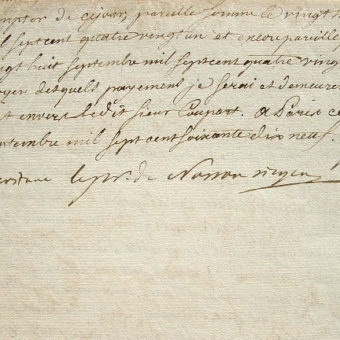 compter de ce jour, pareille somme le vingt h
il sept cent quatre vingt un et encore pareille
ngt huit septembre mil sept cent quatre ving
oyen desquels payement je serai et demeure
t envers le dit sieur Coupart. a Paris ce
eptembre mil sept cent soixante dix neuf.
le de